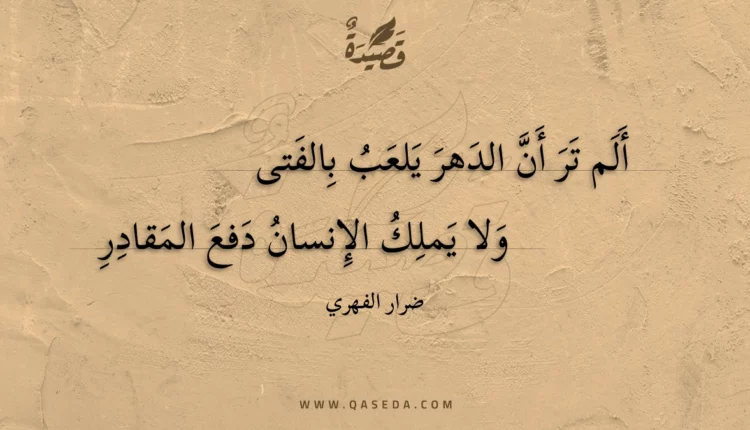 قَصِيدَةٌ
أَلَم تَرَ أَنَّ الدَهرَ يَلعَبُ بِالفَتى
وَلا يَملِكُ الإِنسانُ دَفعَ المَقادِرِ
ضرار الفهري
WWW.QASEDA.COM